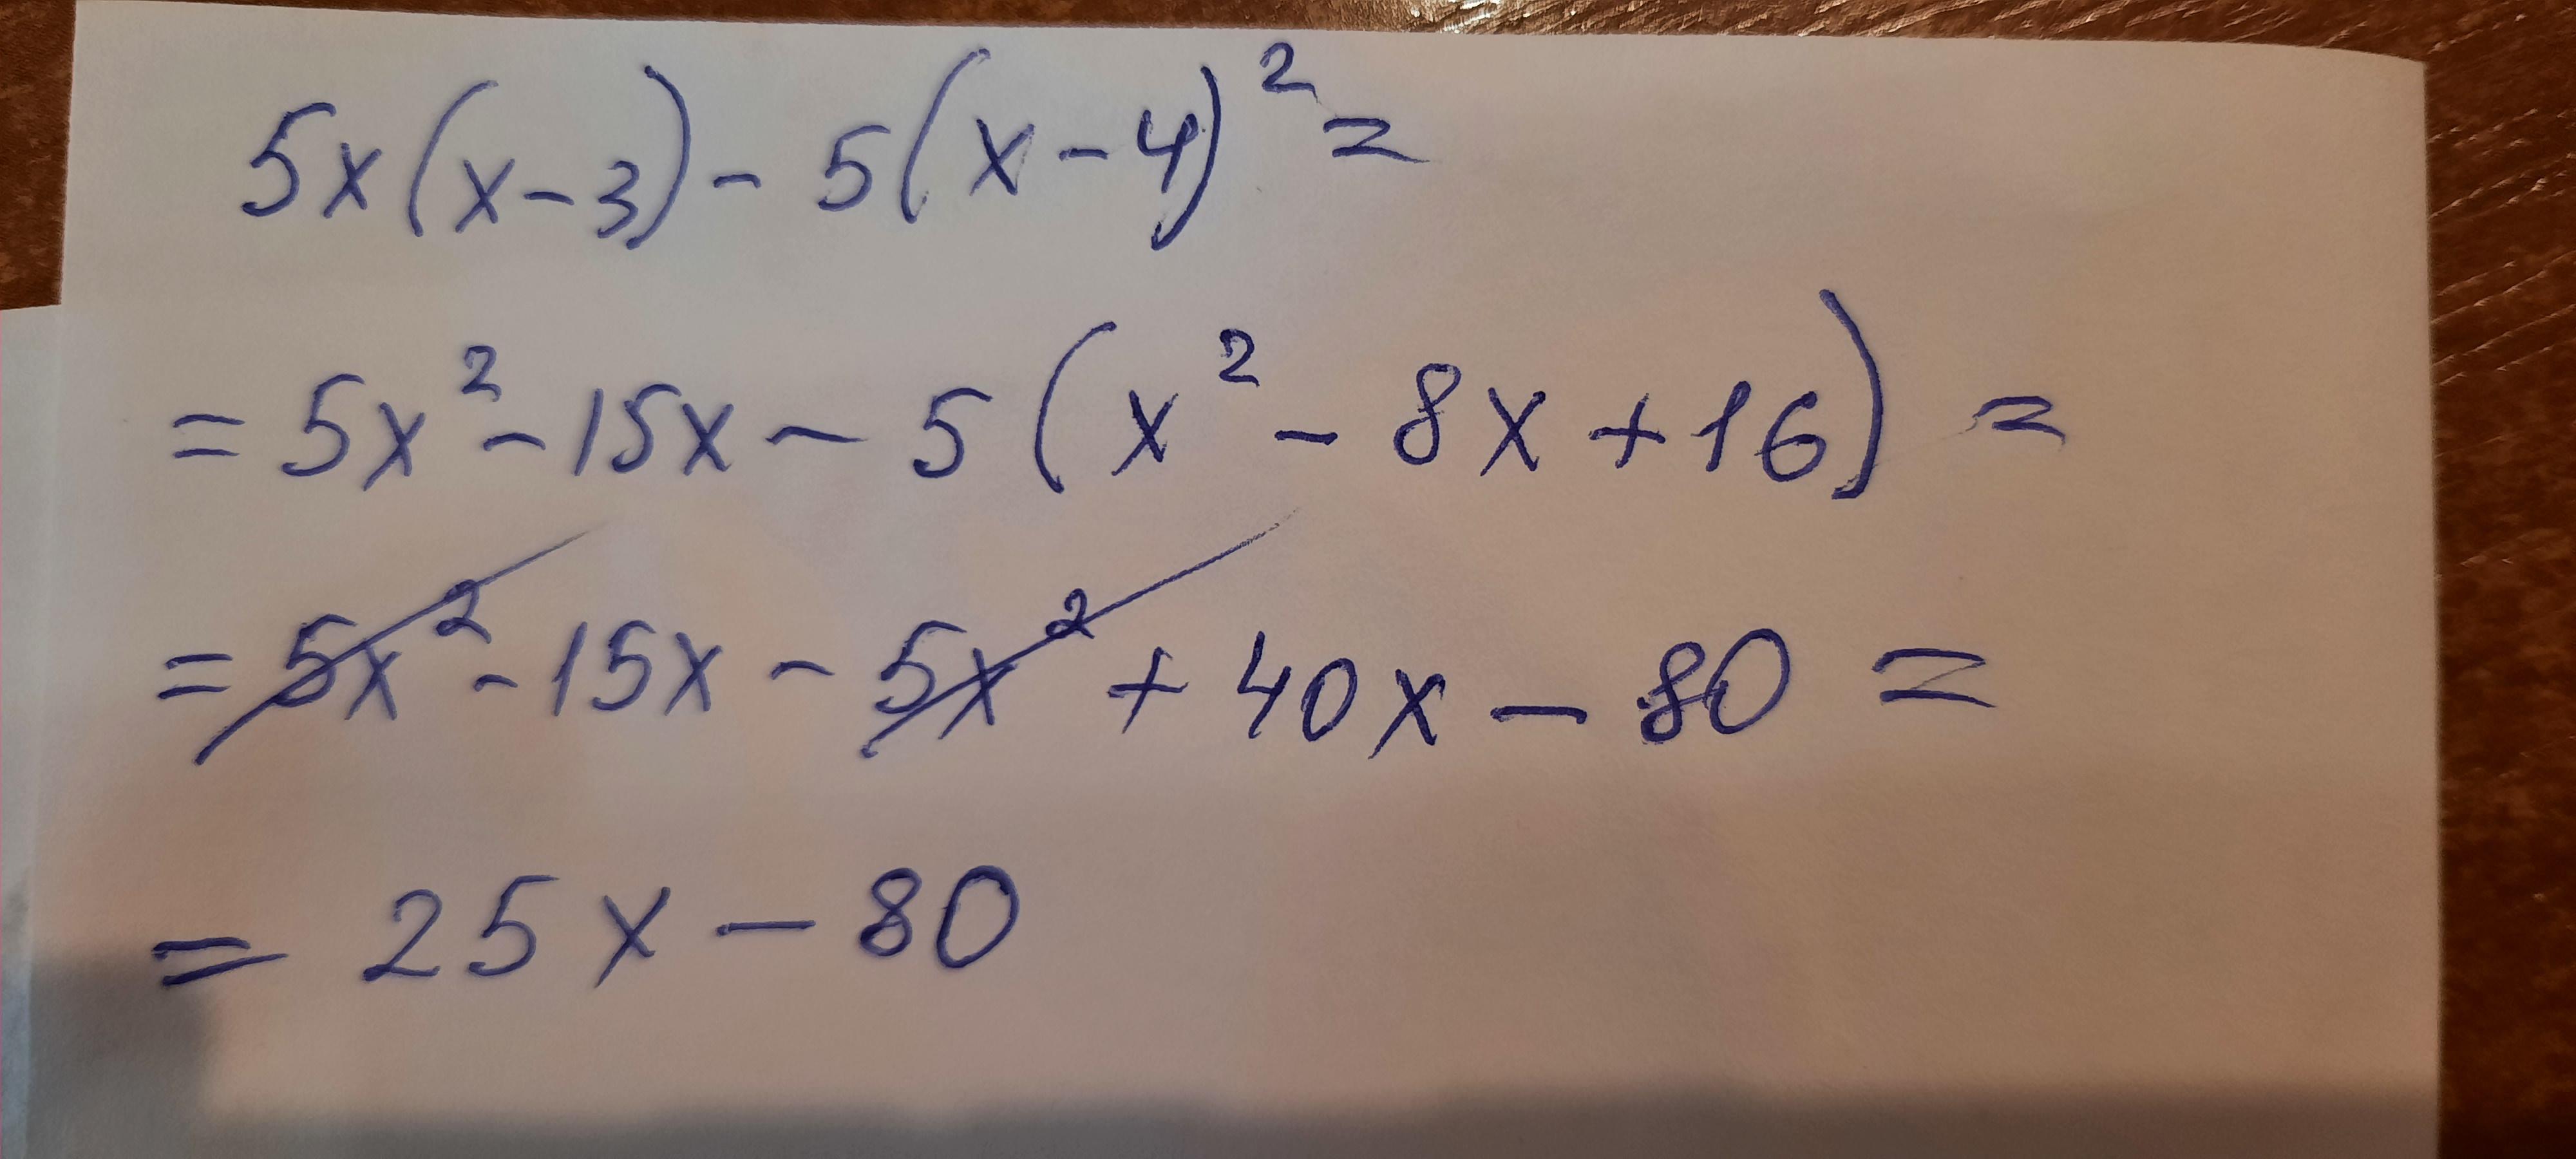 5x(x-3)-5(x-4)²=
=5x²-15x-5(x²-8x+16)=
=5x²-15x-5x²+40x-80=
=25x-80